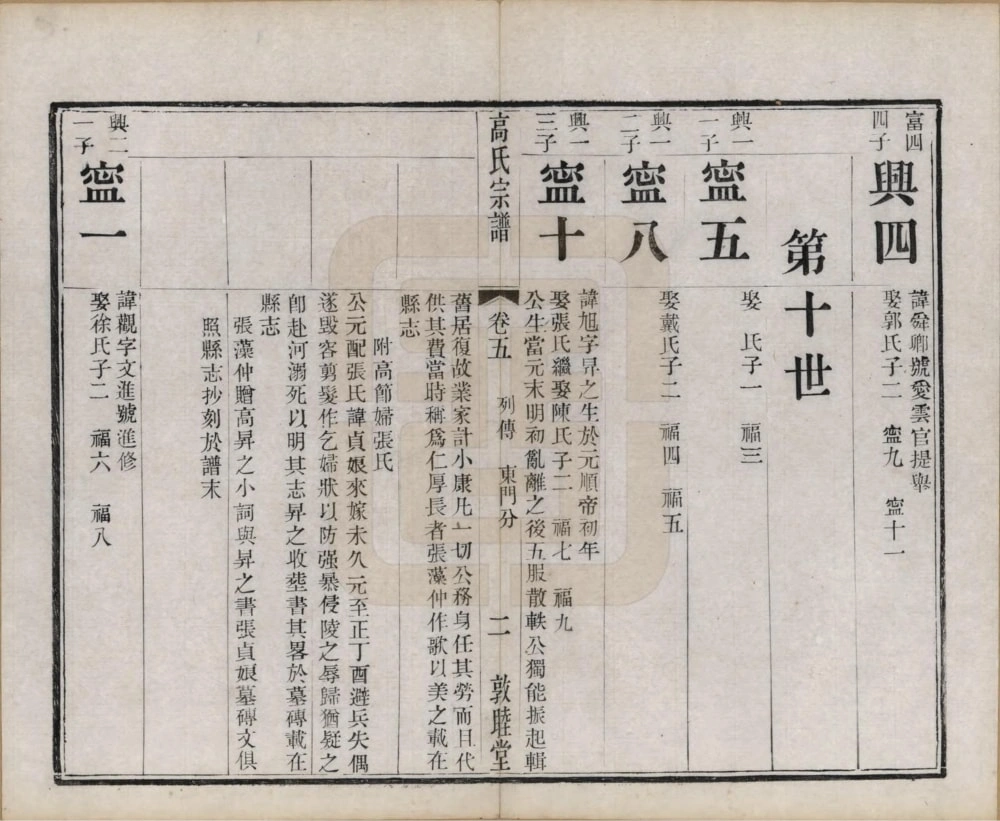 富四
四子
興四
諱舜卿號愛雲官提舉
娶郭氏子二 寍九 寍十一
第十世
興一
一子
寍五
娶 氏子一 福三
興一
二子
寍八
娶戴氏子二 福四 福五
興一
三子
寍十
諱旭字昇之生於元順帝初年
娶張氏繼娶陳氏子二 福七 福九
公生當元末明初亂離之後五服散軼公獨能振起輯
高氏宗譜 卷五 列傳 東門分 二 敦睦堂
舊居復故業家計小康凡一切公務身任其勞而且代
供其費當時稱爲仁厚長者張藻仲作歌以美之載在
縣志
附高節婦張氏
公元配張氏諱貞娘來嫁未久元至正丁酉避兵失偶
遂毀容剪髮作乞婦狀以防强暴侵陵之辱歸猶疑之
卽赴河溺死以明其志昇之收塟書其畧於墓磚載在
縣志
張藻仲贈高昇之小詞與昇之書張貞娘墓磚文俱
照縣志抄刻於譜末
興二
一子
寍一
諱觀字文進號進修
娶徐氏子二 福六 福八